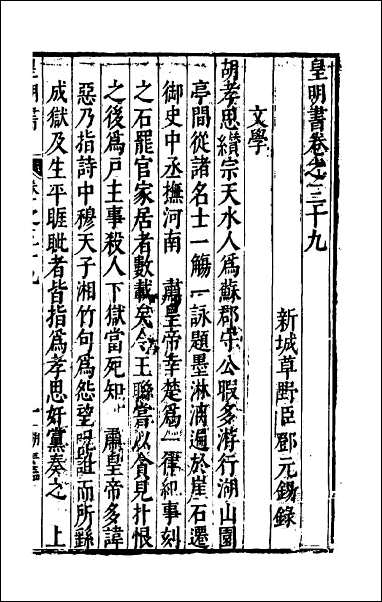 皇明書卷之三十九
新城草野臣鄧元錫錄
文學
胡孝思纘宗天水人爲蘇郡守公暇多游行湖山園
亭間從諸名士一觴一詠題墨淋漓遍於崖石遷
御史中丞撫河南 肅皇帝幸楚爲一律紀事刻
之石罷官家居者數載矣令王聯嘗以貪見扑恨
之後爲戶主事殺人下獄當死知 肅皇帝多諱
惡乃指詩中穆天子湘竹句爲怨望呪詛而所繇
成獄及生平睚眦者皆指爲孝思奸黨奏之 上
皇明書